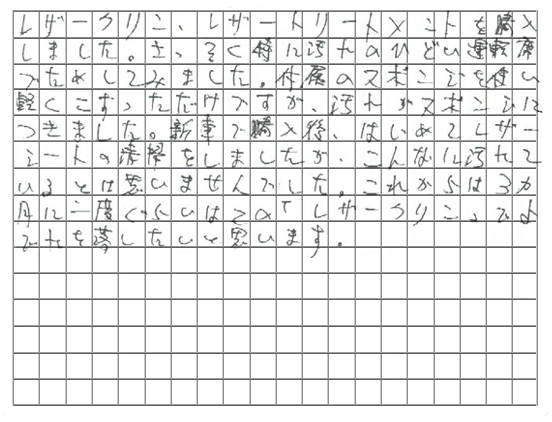 レザークリン、レザートリートメントを購入
しました。さっそく特に汚れのひどい運転席
でためしてみました。付属のスポンジを使い
軽くこすっただけですが、汚れがスポンジに
つきました。新車で購入後、はじめてレザー
シートの清掃をしましたが、こんなに汚れて
いるとは思いませんでした。これからは3か
月に一度くらいはこの「レザークリン」でよ
ごれを落したいと思います。